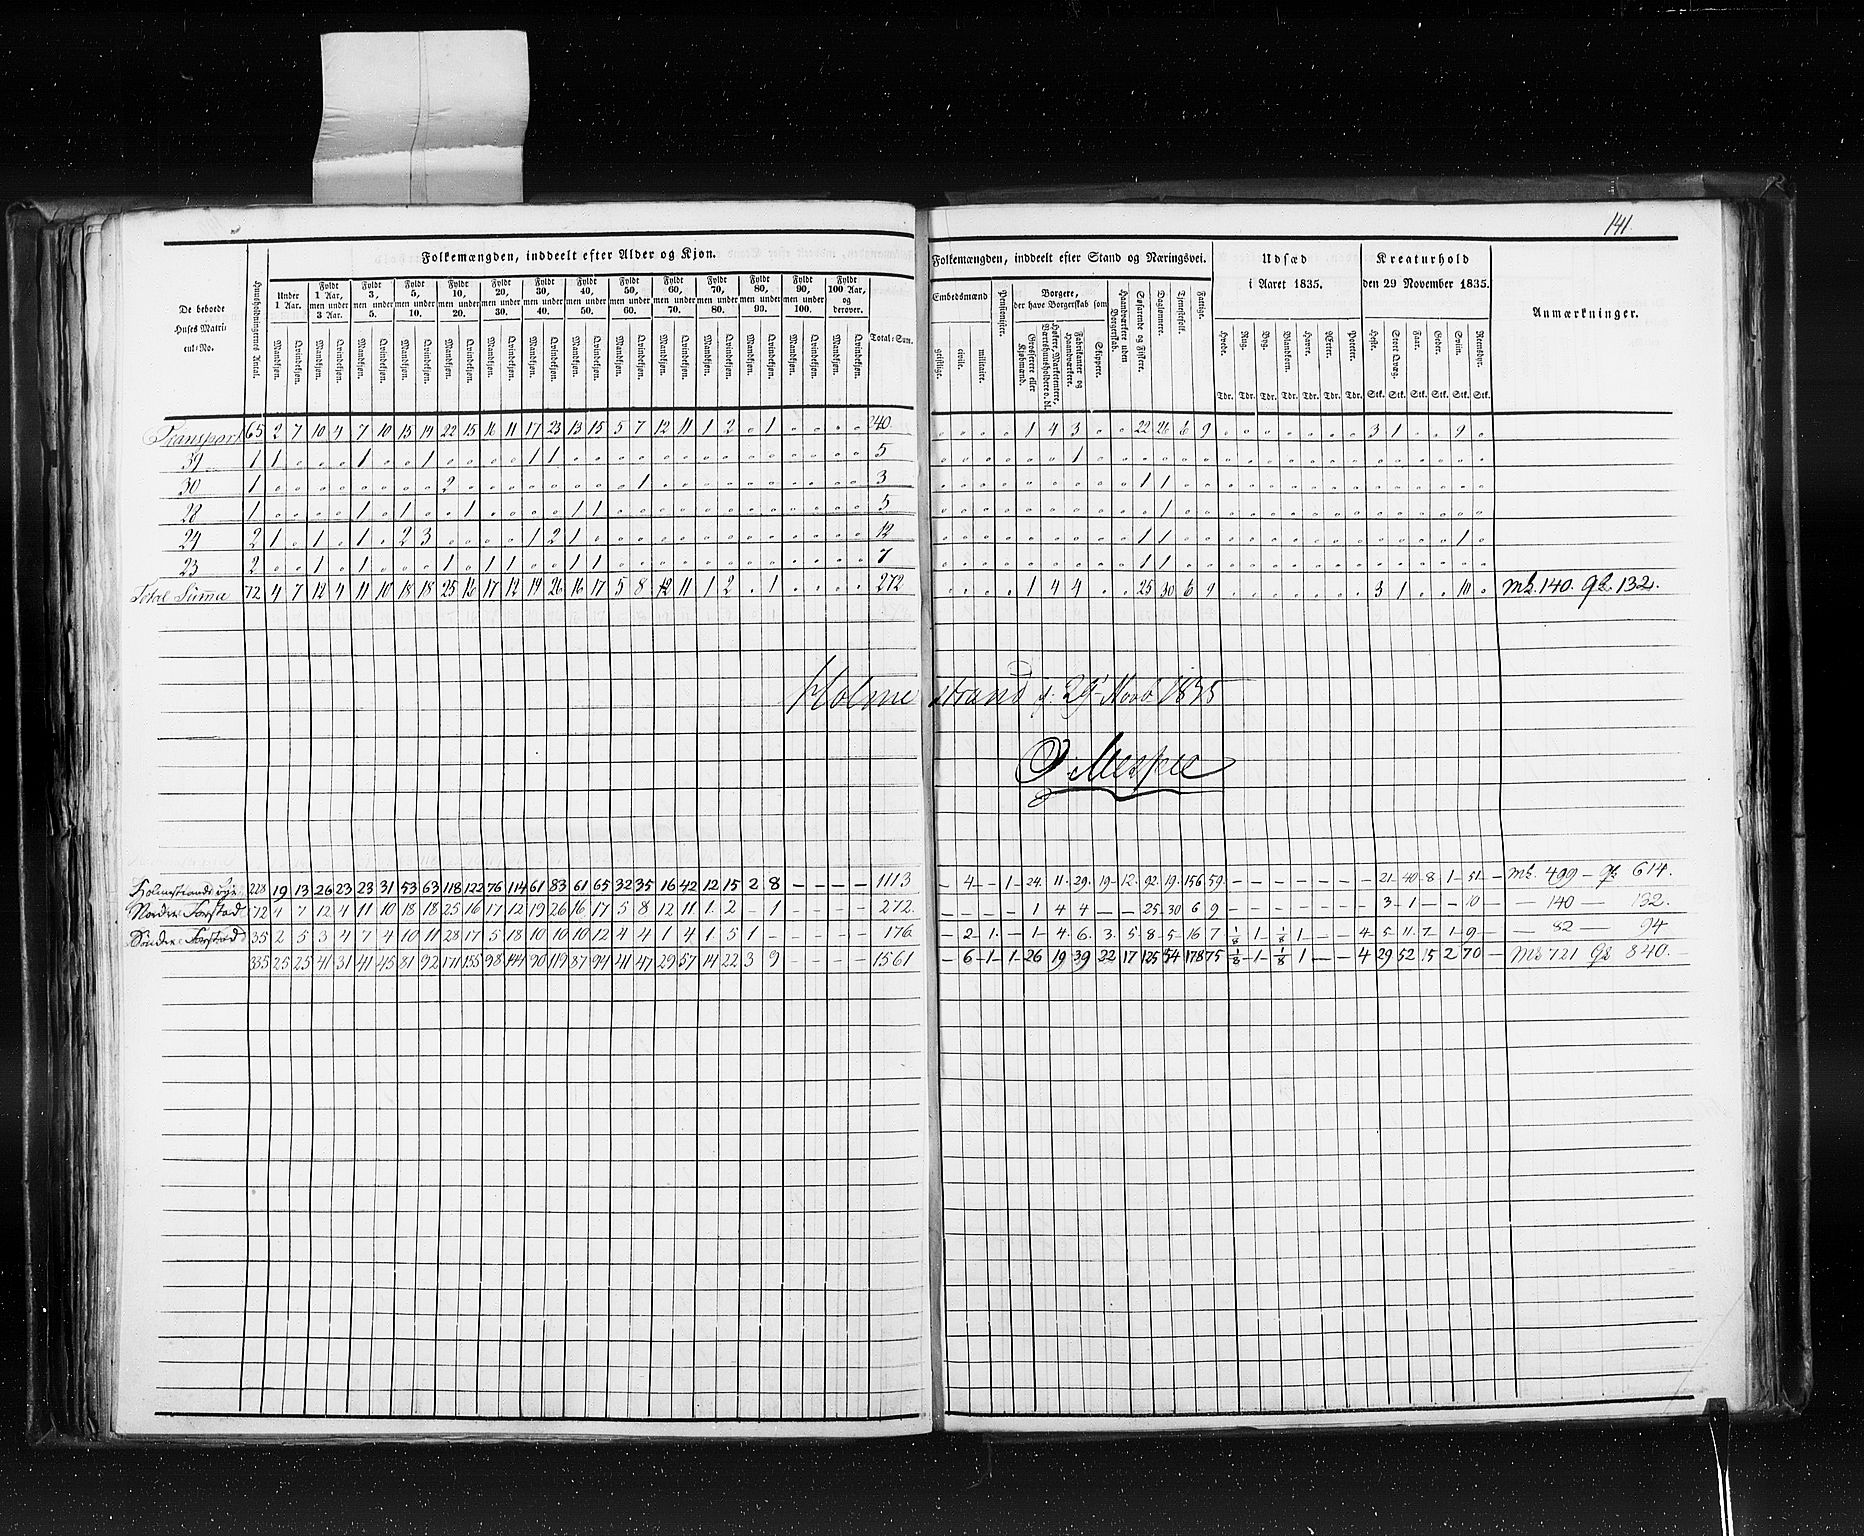 141.
Folkemængden, inddeelt efter Alder og Kjøn.
Folkemængden, inddeelt efter Stand og Næringsvei.
Udsæd i Aaret 1835.
Kreaturhold den 29 November 1835.
De beboede Huses Matrikul-No.
Huusholdningernes Antal.
Under 1 Aar.
Fyldt 1 Aar, men under 3 Aar.
Fyldt 3, men under 5.
Fyldt 5, men under 10.
Fyldt 10, men under 20.
Fyldt 20, men under 30.
Fyldt 30, men under 40.
Fyldt 40, men under 50.
Fyldt 50, men under 60.
Fyldt 60, men under 70.
Fyldt 70, men under 80.
Fyldt 80, men under 90.
Fyldt 90, men under 100.
Fyldt 100 Aar, og derover.
Mandkjøn. Qvindekjøn.
Total-Sum.
Embedsmænd
geistlige. civile. militaire.
Pensionister.
Borgere, der have Borgerskab som
Grosserere eller Kjøbmænd.
Fabrikanter og Haandværkere.
Skippere.
Haandværkere uden Borgerskab.
Søfarende og Fiskere.
Daglønnere.
Tjenestefolk.
Fattige.
Hvede. Rug. Byg. Blandkorn. Havre. Erter. Poteter.
Tdr. Tdr. Tdr. Tdr. Tdr. Tdr. Tdr.
Heste. Stort Qvæg. Faar. Geder. Sviin. Reensdyr.
Stk. Stk. Stk. Stk. Stk. Stk.
Anmærkninger.
Transport 65 2 7 10 4 7 10 15 14 22 15 16 11 17 23 13 15 5 7 12 11 1 2 . 1 . . . . 240 . . . . 1 4 3 . . 22 26 6 9 . . . . . . . 3 1 . . 9 .
39 1 1 . . . 1 . . 1 . . . . 1 1 . . . . . . . . . . . . . . 5 . . . . . . 1 . . . . . . . . . . . . . . . . . . .
30 1 . . . . . . . . 2 . . . . . . . . 1 . . . . . . . . . . 3 . . . . . . . . . 1 1 . . . . . . . . . . . . . . .
28 1 . . . . 1 . 1 . . 1 . . . . 1 1 . . . . . . . . . . . . 5 . . . . . . . . . . 1 . . . . . . . . . . . . . . .
24 2 1 . 1 . 1 . 2 3 . . . . 1 2 1 . . . . . . . . . . . . . 12 . . . . . . . . . 1 1 . . . . . . . . . . . . . 1 .
23 2 . . 1 . 1 . . . 1 . 1 1 . . 1 1 . . . . . . . . . . . . 7 . . . . . . . . . 1 1 . . . . . . . . . . . . . . .
Total Summa 72 4 7 12 4 11 10 18 18 25 16 17 12 19 26 16 17 5 8 12 11 1 2 . 1 . . . . 272 . . . . 1 4 4 . . 25 30 6 9 . . . . . . . 3 1 . . 10 . Mk. 140. Qk. 132.
Holmestrand d: 29 Novb 1835
Holmestrands 228 19 13 26 23 23 31 53 63 118 122 76 114 61 83 61 65 32 35 16 42 12 15 2 8 – – – – 1113 – 4 – 1 24 11 29 19 12 92 19 156 59 – – – – – – – 21 40 8 1 51 – Mk. 499 – Qk 614.
Nordre Forstad 72 4 7 12 4 11 10 18 18 25 16 17 12 19 26 16 17 5 8 12 11 1 2 – 1 – – – – 272. – – – – 1 4 4 – – 25 30 6 9 – – – – – – – 3 1 – – 10 – — 140 — 132.
Søndre Forstad 35 2 5 3 4 7 4 10 11 28 17 5 18 10 10 10 12 4 4 1 4 1 5 1 – – – – – 176 – 2 1 – 1 4 6 3 5 8 5 16 7 1/8 1 1/8 1 – – 4 5 11 7 1 9 – — 82 — 94
335 25 25 41 31 41 45 81 92 171 155 98 144 90 119 87 94 41 47 29 57 14 22 3 9 – – – – 1561 – 6 1 1 26 19 39 22 17 125 54 178 75 1/8 1 1/8 1 – – 4 29 52 15 2 70 – Mk 721 Qk 840.